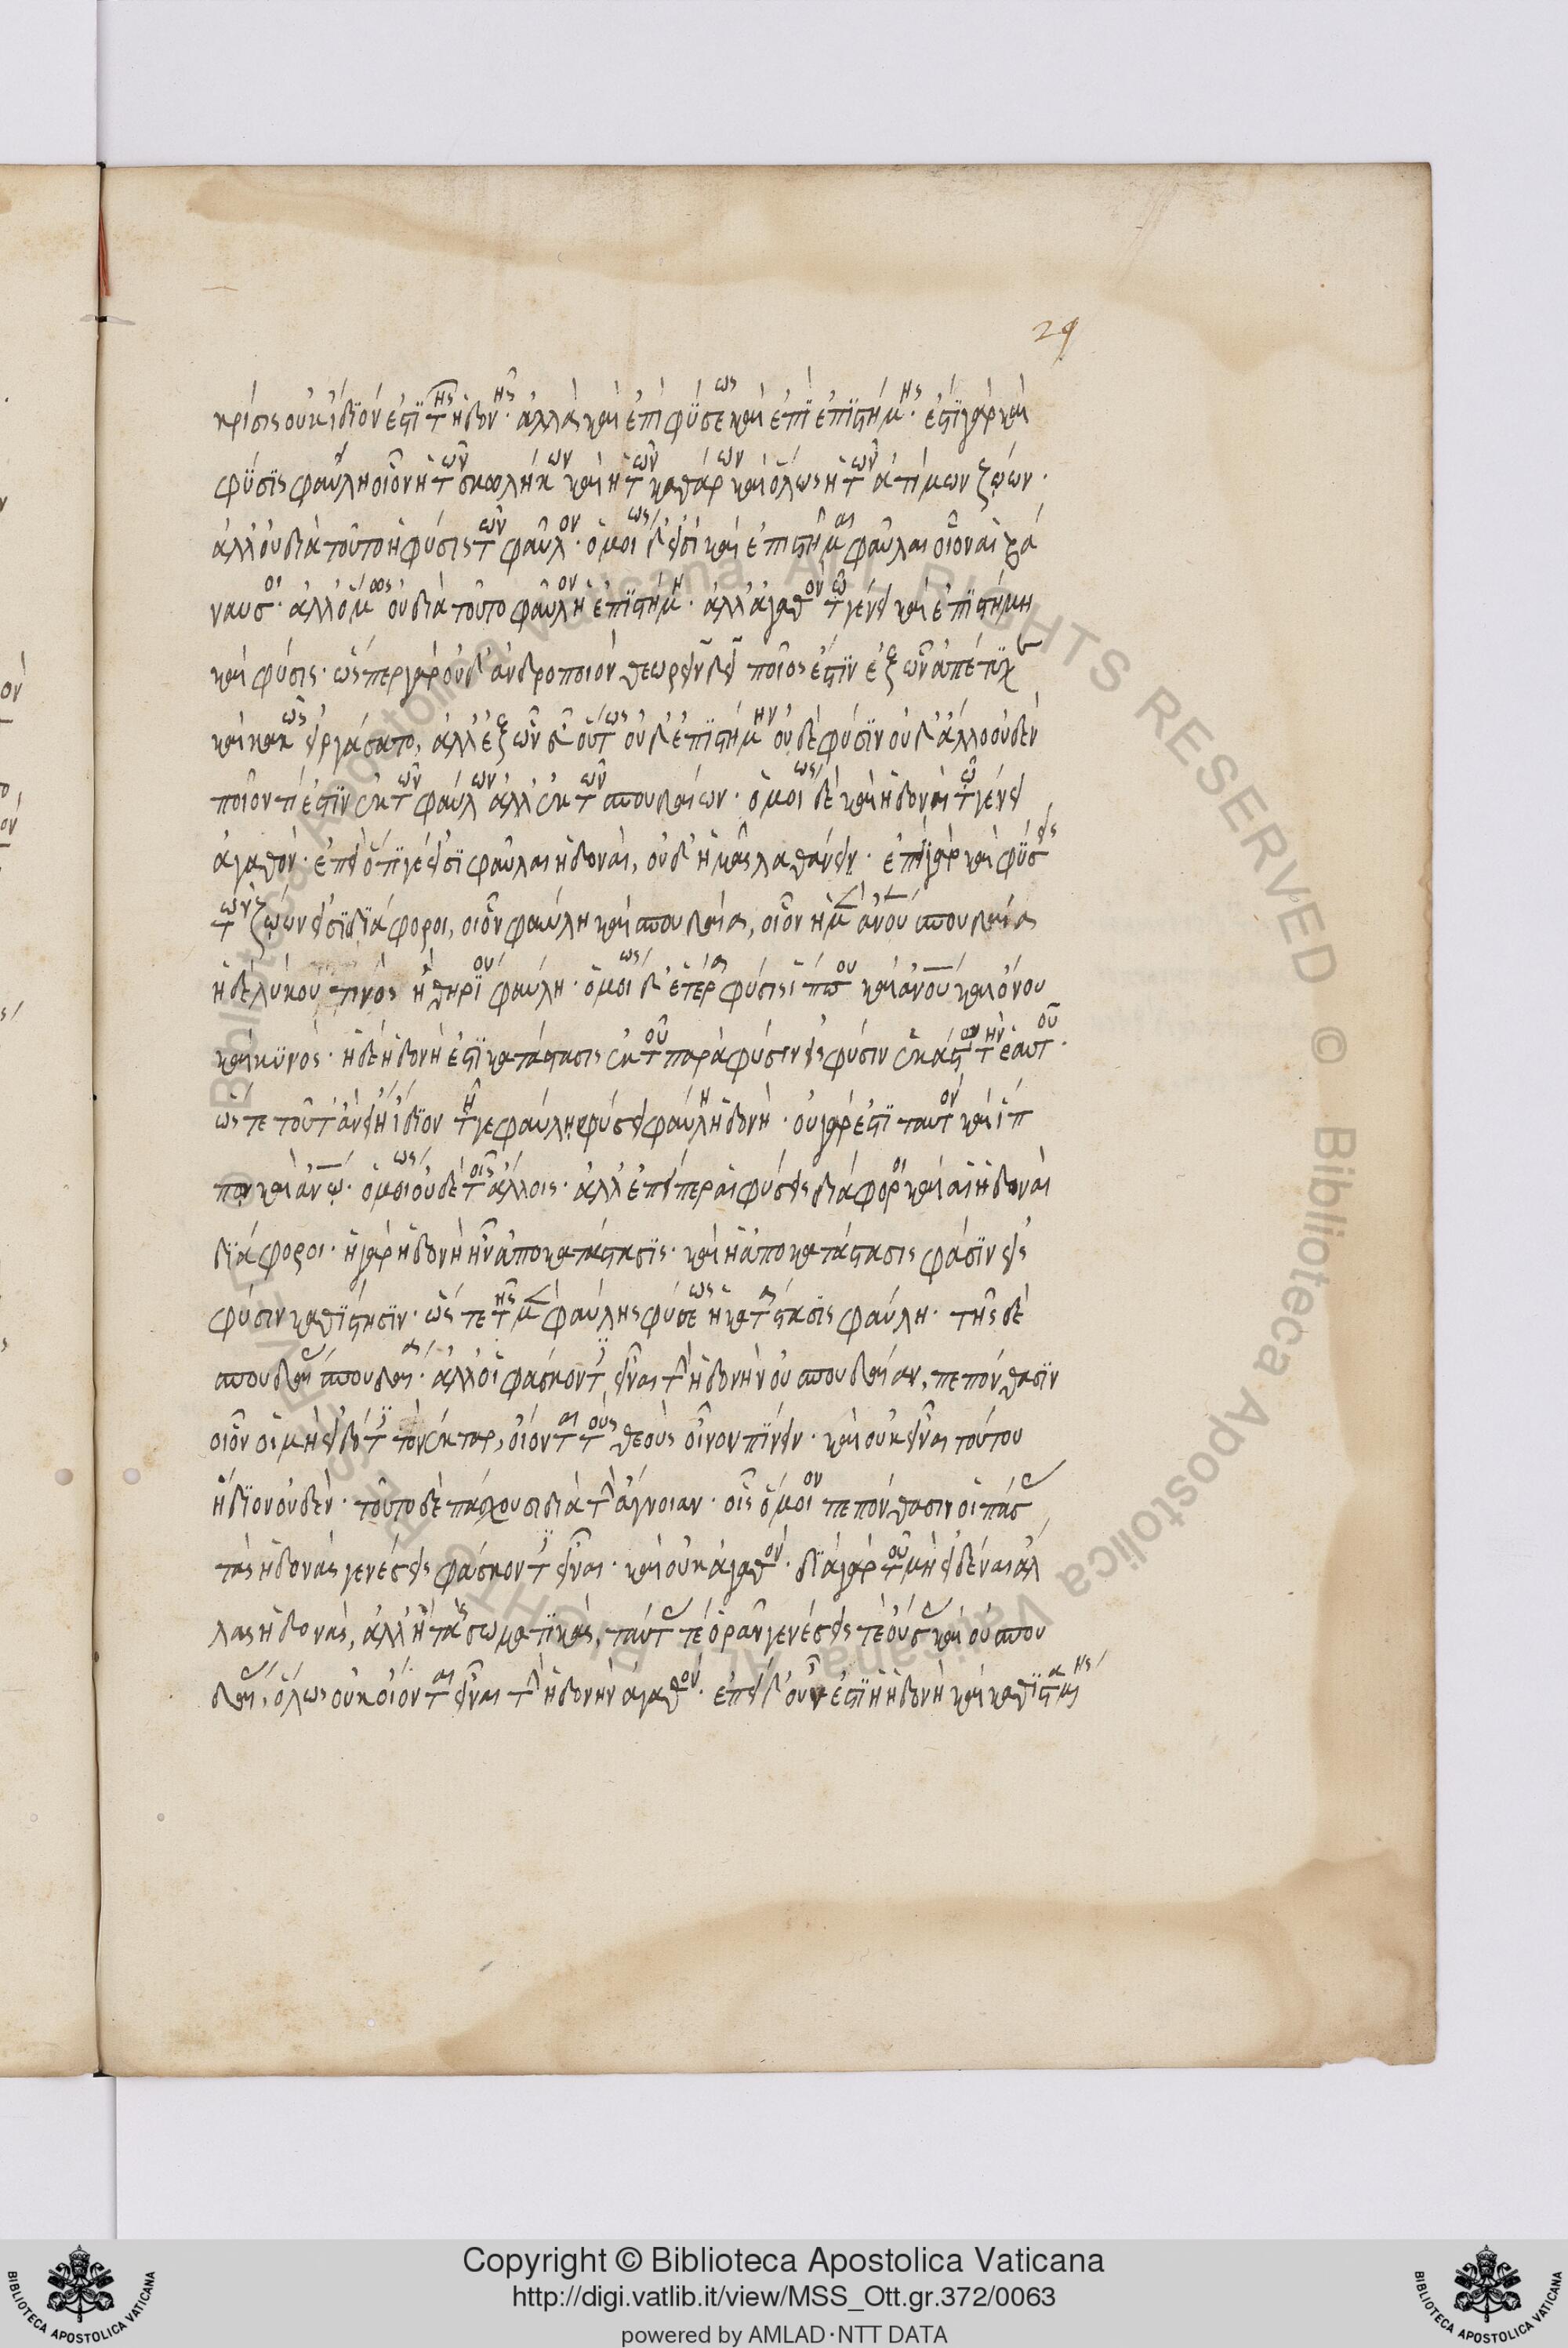 29
κρίσις οὐκ ἴδιον ἐστὶ τῆς ἡδονῆς· ἀλλὰ καὶ ἐπὶ φύσεως καὶ ἐπὶ ἐπιστήμης· ἐστὶ γὰρ καὶ
φύσις φαύλη οἷον ἡ τῶν σκωλήκων καὶ ἡ τῶν κανθάρων καὶ ὅλως ἡ τῶν ἀτίμων ζῴων·
ἀλλ' οὐ διὰ τοῦτο ἡ φύσις τῶν φαύλον· ὁμοίως δ' εἰσὶ καὶ ἐπιστῆμαι φαῦλαι οἷον αἱ βά
ναυσοι· ἀλλ' ὅμως οὐ διὰ τοῦτο φαῦλον ἡ ἐπιστήμη· ἀλλ' ἀγαθὸν τῷ γένει καὶ ἐπιστήμη
καὶ φύσις· ὥσπερ γὰρ οὐδ' ἀνδροποιὸν θεωρεῖν δεῖ ποῖος ἐστὶν ἐξ ὧν ἀπέτυχεν
καὶ κακῶς εἰργάσατο, ἀλλ' ἐξ ὧν εὖ οὕτως οὐδ' ἐπιστήμην οὐδὲ φύσιν οὐδ' ἄλλο οὐδὲν
ποῖόν τί ἐστιν ἐκ τῶν φαύλων ἀλλ' ἐκ τῶν σπουδαίων· ὁμοίως δὲ καὶ ἡδονὴ τῷ γένει
ἀγαθόν· ἐπεὶ ὅτι γέ εἰσι φαῦλαι ἡδοναί, οὐδ' ἡμᾶς λανθάνειν· ἐπεὶ γὰρ καὶ φύσεις
τῶν ζῴων εἰσὶ διάφοροι, οἷον φαύλη καὶ σπουδαία, οἷον ἡ μὲν ἀνου σπουδαία
ἡ δὲ λύκου τινὸς ἢ θηρίου φαύλη· ὁμοίως δ' ἑτέρα φύσις ἵππου καὶ ἀνου καὶ ὄνου
καὶ κυνός· ἡ δὲ ἡδονή ἐστι κατάστασις ἐκ τοῦ παρὰ φύσιν εἰς φύσιν ἑκάστῳ τὴν ἑαυτοῦ·
ὥστε τοῦτ' ἂν εἴη ἴδιον τῇ γε φαύλῃ φύσει φαύλη ἡδονή· οὐ γάρ ἐστι ταυτὸν καὶ ἵπ
πῳ καὶ ἀνῳ· ὁμοίως οὐδὲ τοῖς ἄλλοις· ἀλλ' ἐπείπερ αἱ φύσεις διάφοροι καὶ αἱ ἡδοναὶ
διάφοροι· ἡ γὰρ ἡδονὴ ἦν ἀποκατάστασις· καὶ ἡ ἀποκατάστασις φασὶν εἰς
φύσιν καθίστησιν· ὥστε τῆς μὲν φαύλης φύσεως ἡ κατάστασις φαύλη· τῆς δὲ
σπουδαίας σπουδαία· ἀλλ' οἱ φάσκοντες εἶναι τὴν ἡδονὴν οὐ σπουδαίαν, πεπόνθασιν
οἷον οἱ μὴ εἰδότες τὸ νέκταρ, οἴονται τοὺς θεοὺς οἶνον πίνειν· καὶ οὐκ εἶναι τούτου
ἥδιον οὐδέν· τοῦτο δὲ πάσχουσι διὰ τὴν ἄγνοιαν· οἷς ὅμοιον πεπόνθασιν οἱ πάσας
τὰς ἡδονὰς γενέσεις φάσκοντες εἶναι· καὶ οὐκ ἀγαθόν· διὰ γὰρ τοῦ μὴ εἰδέναι ἄλ
λας ἡδονάς, ἀλλ' ἢ τὰς σωματικάς, ταύτας τε ὁρᾶν γενέσεις τε οὔσας καὶ οὐ σπου
δαίας, ὅλως οὐκ οἴονται εἶναι τὴν ἡδονὴν ἀγαθόν· ἐπεὶ δ' οὖν ἐστὶ ἡ ἡδονὴ καὶ καθισταμένης
© Biblioteca Apostolica Vaticana ALL RIGHTS RESERVED © Biblioteca Apostolica Vaticana ALL RIGHTS RESERVED
Copyright © Biblioteca Apostolica Vaticana
http://digi.vatlib.it/view/MSS_Ott.gr.372/0063
powered by AMLAD·NTT DATA
BIBLIOTECA APOSTOLICA VATICANA
BIBLIOTECA APOSTOLICA VATICANA